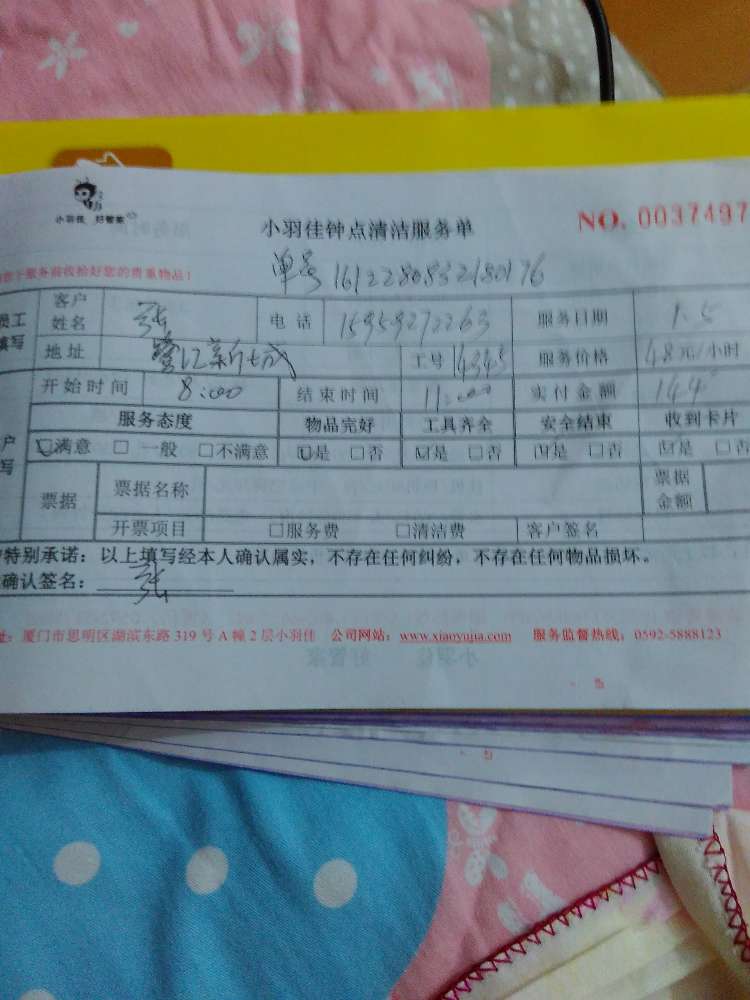 小羽佳 好管家
小羽佳钟点清洁服务单
NO. 0037497
服务前收拾好您的贵重物品！
单号 1612280832180176
员工填写
客户姓名 张 电话 15959272263 服务日期 1.5
地址 鹭江新城 工号 14345 服务价格 48元/小时
开始时间 8:00 结束时间 11:00 实付金额 144
服务态度 物品完好 工具齐全 安全结束 收到卡片
☑满意 □一般 □不满意 ☑是 □否 ☑是 □否 ☑是 □否 ☑是 □否
户
写
票据 票据名称 票据金额
开票项目 □服务费 □清洁费 客户签名
特别承诺：以上填写经本人确认属实，不存在任何纠纷，不存在任何物品损坏。
确认签名：张
址：厦门市思明区湖滨东路 319 号 A 幢 2 层小羽佳 公司网站：www.xiaoyujia.com 服务监督热线：0592-5888123